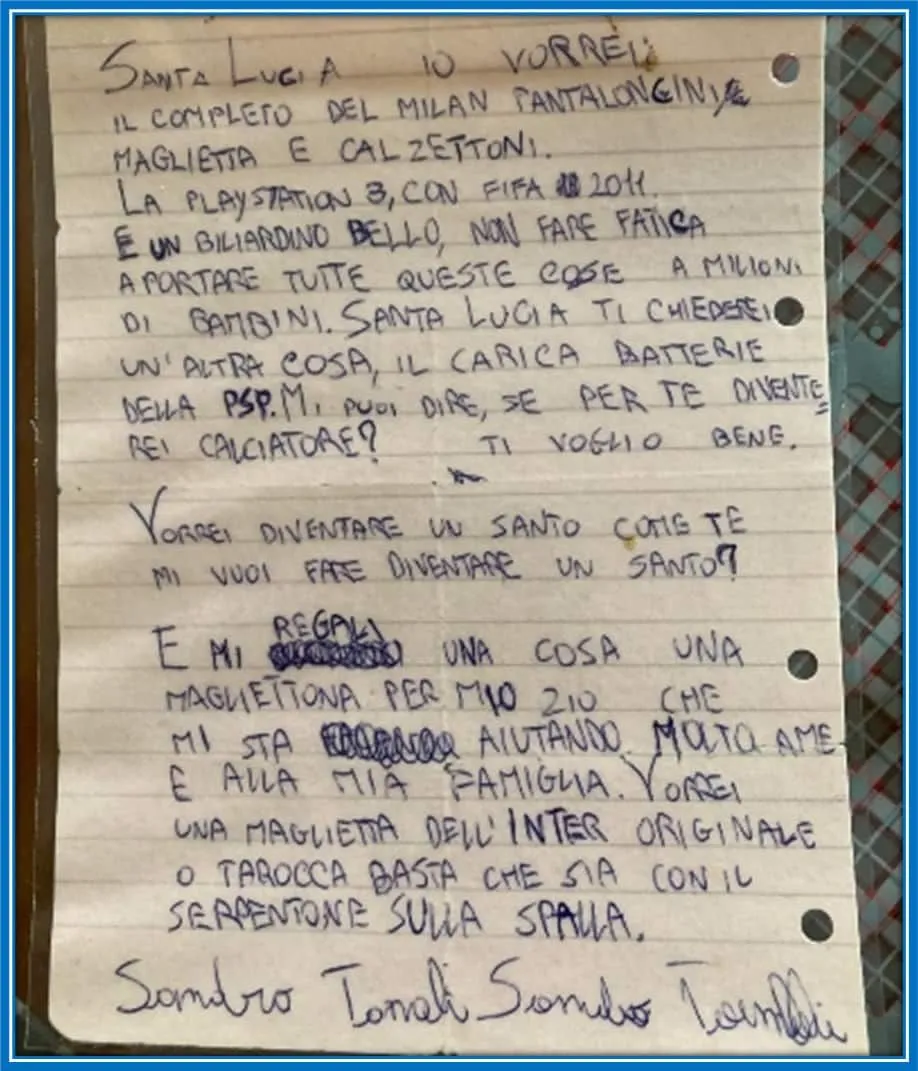 SANTA LUCIA IO VORREI:
IL COMPLETO DEL MILAN PANTALONCINI E
MAGLIETTA E CALZETTONI.
LA PLAYSTATION 3, CON FIFA 2011.
E UN BILIARDINO BELLO, NON FARE FATICA
A PORTARE TUTTE QUESTE COSE A MILIONI
DI BAMBINI. SANTA LUCIA TI CHIEDEREI
UN'ALTRA COSA, IL CARICA BATTERIE
DELLA PSP. MI PUOI DIRE, SE PER TE DIVENTE=
REI CALCIATORE? TI VOGLIO BENE.
VORREI DIVENTARE UN SANTO COME TE
MI VUOI FARE DIVENTARE UN SANTO?
E MI REGALI UNA COSA UNA
MAGLIETTONA PER MIO ZIO CHE
MI STA AIUTANDO MOLTO A ME
E ALLA MIA FAMIGLIA. VORREI
UNA MAGLIETTA DELL'INTER ORIGINALE
O TAROCCA BASTA CHE SIA CON IL
SERPENTONE SULLA SPALLA.
Sandro Tonali Sandro Tonali